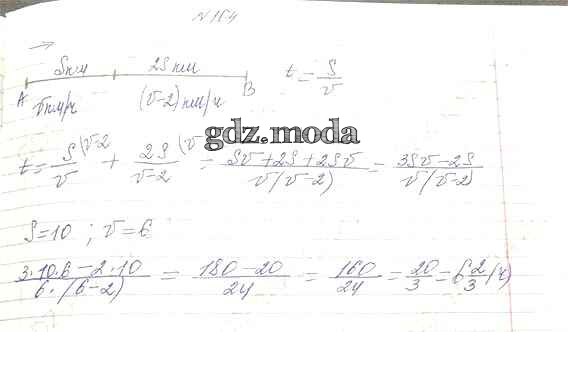 N 164
S км 2S км
t = S/v
A B
v км/ч (v-2) км/ч
gdz.moda
t = S/v (v-2 + 2S/(v-2) (v = (Sv+2S+2Sv)/(v(v-2)) = (3Sv-2S)/(v(v-2))
S=10 ; v=6
(3·10·6-2·10)/(6·(6-2)) = (180-20)/24 = 160/24 = 20/3 = 6 2/3 (ч)